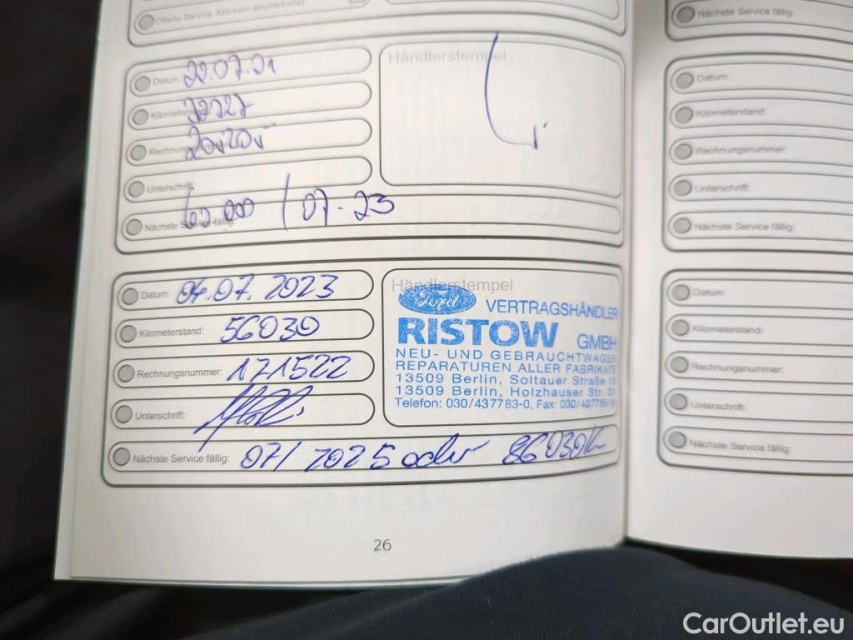 Offene Service Aktionen abgearbeitet
Datum: 22.07.21
Kilometerstand:
Rechnungsnummer:
Unterschrift:
Nächste Service fällig: 62000 / 07-23
Händlerstempel
Datum: 04.07.2023
Kilometerstand: 56030
Rechnungsnummer: 171522
Unterschrift:
Nächste Service fällig: 07/2025 oder 86030K
Händlerstempel
Ford VERTRAGSHÄNDLER
RISTOW GMBH
NEU- UND GEBRAUCHTWAGEN
REPARATUREN ALLER FABRIKATE
13509 Berlin, Soltauer Straße
13509 Berlin, Holzhauser Str.
Telefon: 030/437783-0, Fax: 030/437783-
26
Nächste Service fällig:
Datum:
Kilometerstand:
Rechnungsnummer:
Unterschrift:
Nächste Service fällig:
Datum:
Kilometerstand:
Rechnungsnummer:
Unterschrift:
Nächste Service fällig:
CarOutlet.eu